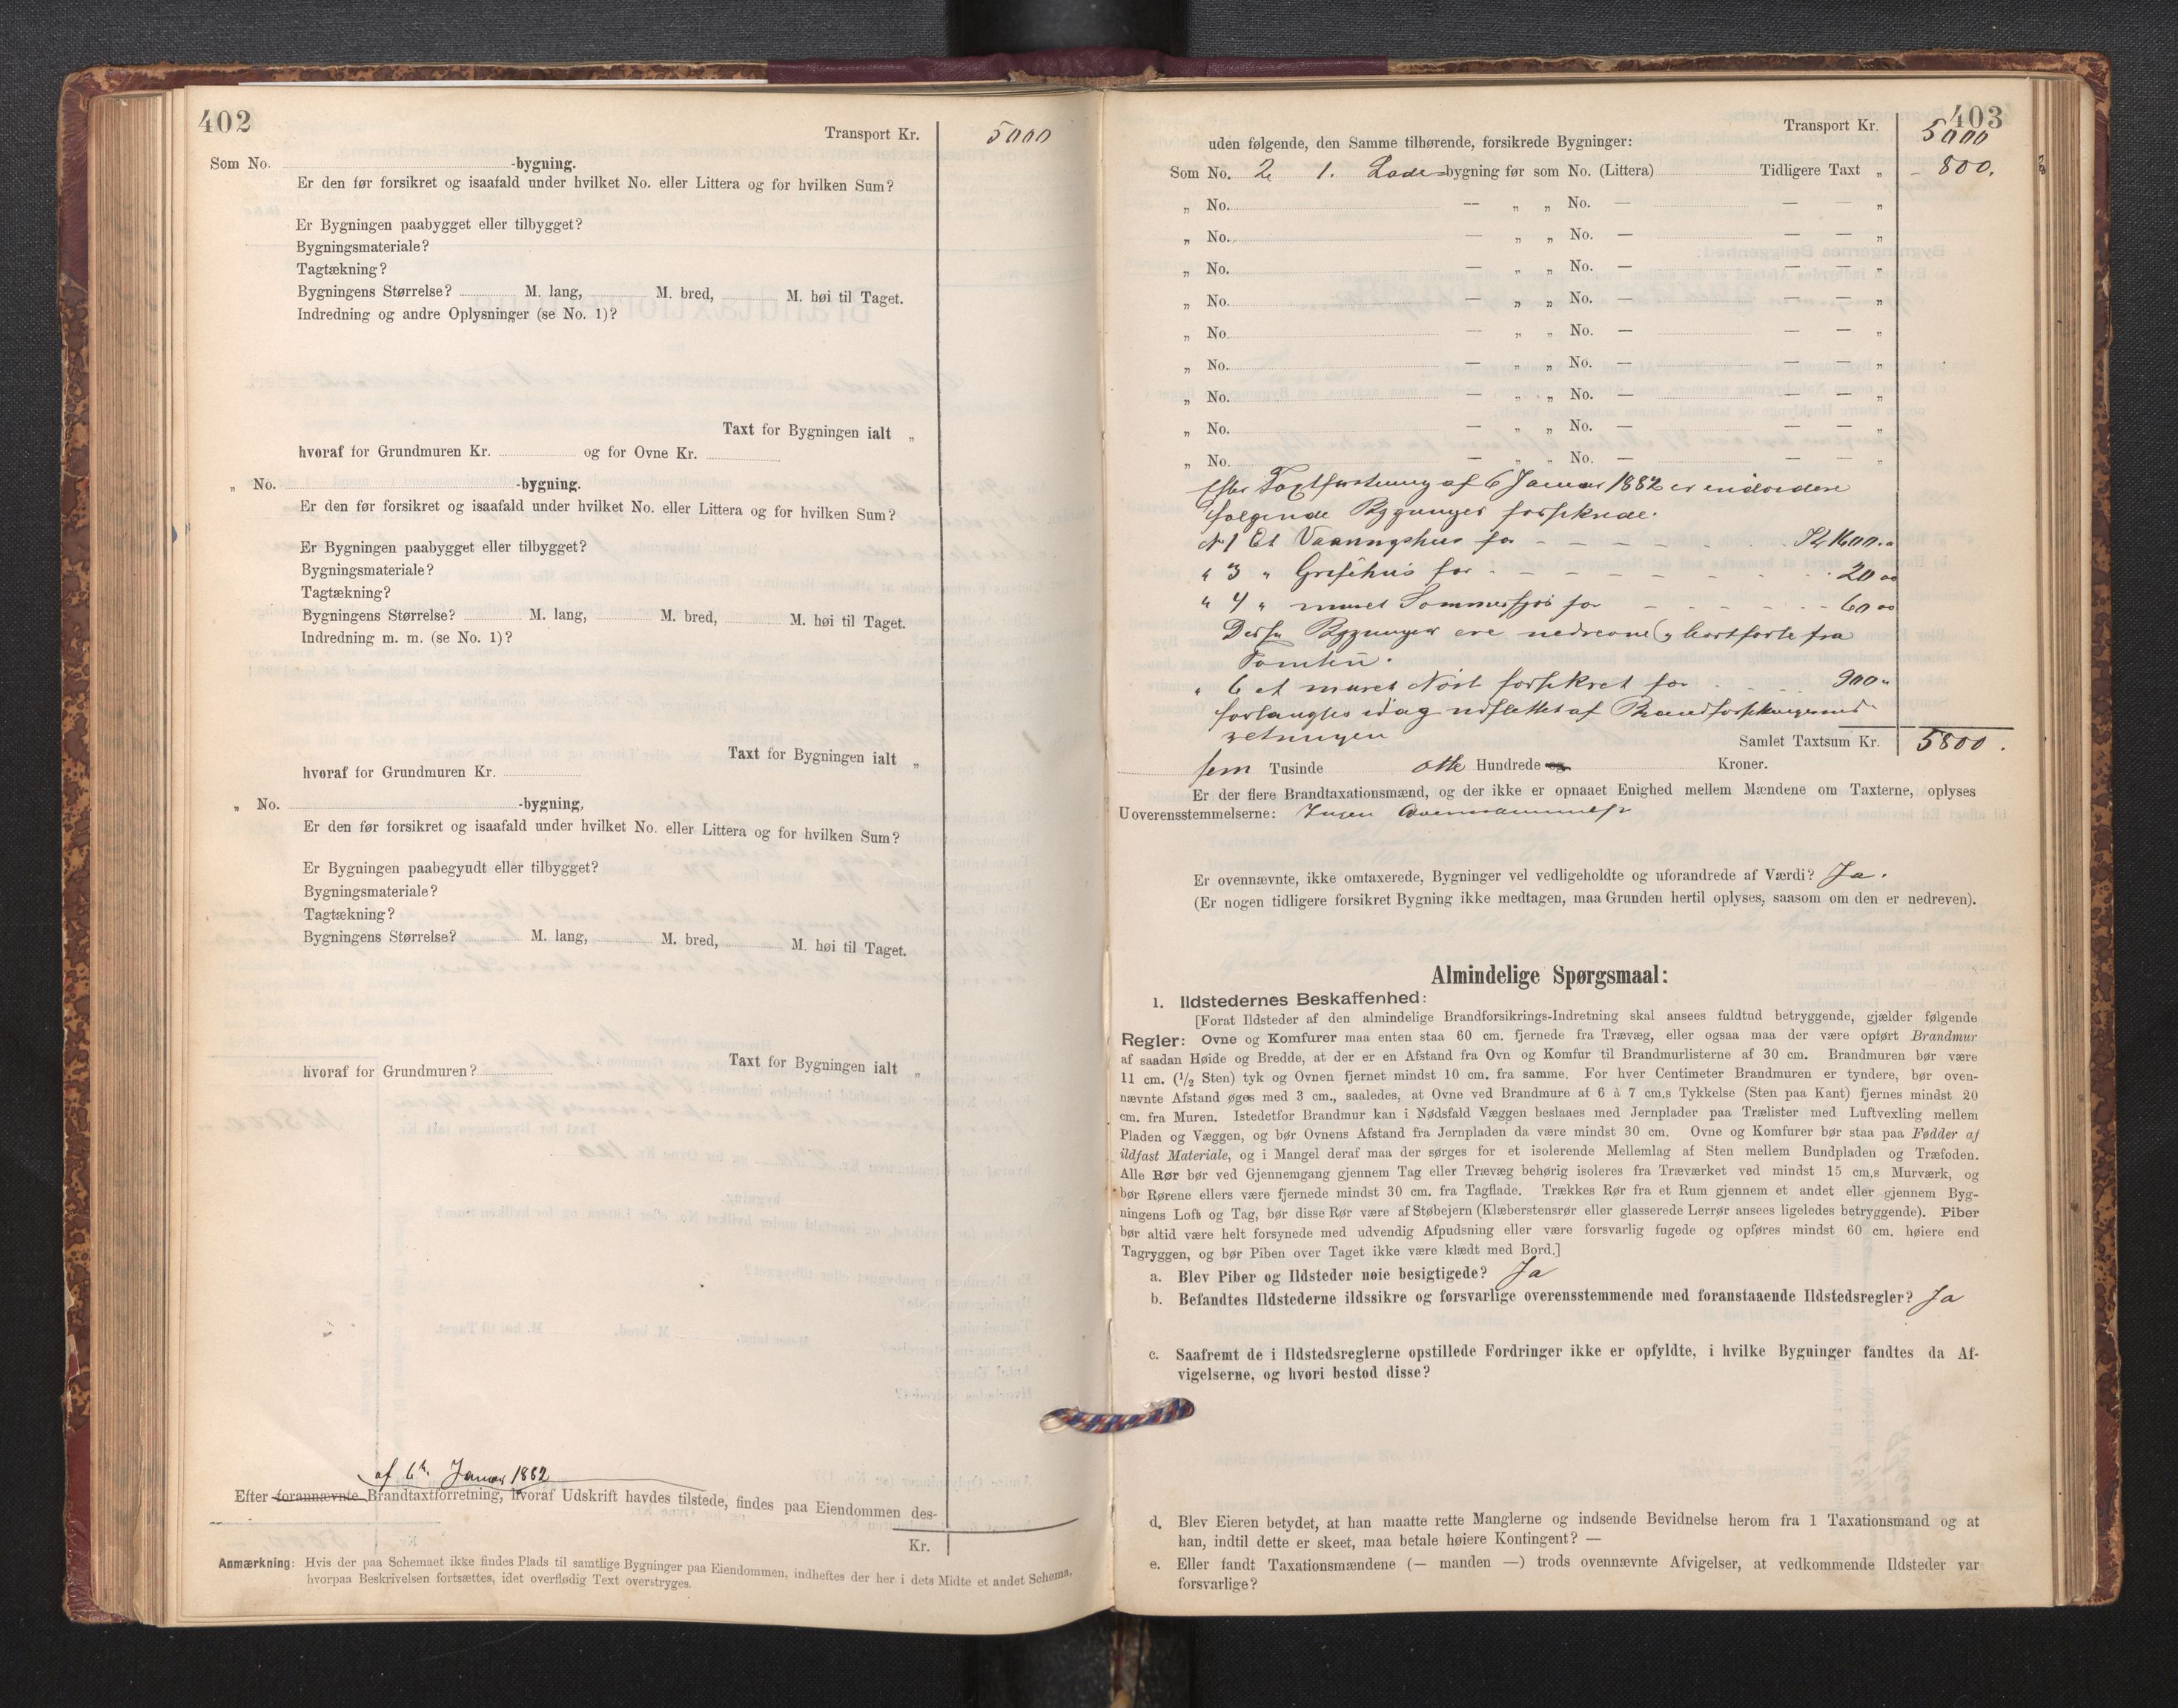 402
Transport Kr. 5000
Som No. -bygning.
Er den før forsikret og isaafald under hvilket No. eller Littera og for hvilken Sum?
Er Bygningen paabygget eller tilbygget?
Bygningsmateriale?
Tagtækning?
Bygningens Størrelse? M. lang, M. bred, M. høi til Taget.
Indredning og andre Oplysninger (se No. 1)?
Taxt for Bygningen ialt „
hvoraf for Grundmuren Kr. og for Ovne Kr.
„ No. -bygning.
Er den før forsikret og isaafald under hvilket No. eller Littera og for hvilken Sum?
Er Bygningen paabygget eller tilbygget?
Bygningsmateriale?
Tagtækning?
Bygningens Størrelse? M. lang, M. bred, M. høi til Taget.
Indredning m. m. (se No. 1)?
Taxt for Bygningen ialt „
hvoraf for Grundmuren Kr.
„ No. -bygning,
Er den før forsikret og isaafald under hvilket No. eller Littera og for hvilken Sum?
Er Bygningen paabegyudt eller tilbygget?
Bygningsmateriale?
Tagtækning?
Bygningens Størrelse? M. lang, M. bred, M. høi til Taget.
Taxt for Bygningen ialt „
hvoraf for Grundmuren?
af 6te Januar 1882
Efter forannævnte Brandtaxtforretning, hvoraf Udskrift havdes tilstede, findes paa Eiendommen des-
Kr.
Anmærkning: Hvis der paa Schemaet ikke findes Plads til samtlige Bygninger paa Eiendommen, indheftes der her i dets Midte et andet Schema,
hvorpaa Beskrivelsen fortsættes, idet overflødig Text overstryges.
403
Transport Kr. 5000
uden følgende, den Samme tilhørende, forsikrede Bygninger:
Som No. 2 1. Lade-bygning før som No. (Littera) Tidligere Taxt „ 800.
„ No. — „ „ No. — — — „
„ No. — „ „ No. — — — „
„ No. — „ „ No. — — — „
„ No. — „ „ No. — — — „
„ No. — „ „ No. — — — „
„ No. — „ „ No. — — — „
„ No. — „ „ No. — — — „
„ No. — „ „ No. — — — „
„ No. — „ „ No. — — — „
Efter Taxtforretning af 6 Januar 1882 er endvidere
følgende Bygninger forsikrede.
No 1 Et Vaaningshus for Kr 1600.
" 3 " Grisehus for 20 00
" 4 " muret Sommerfjøs for 60 00
Disse Bygninger ere nedrevne og bortførte fra
Tomten.
" 6 et muret Nøst forsikret for 900 "
forlangtes idag udslettet af Brandforsikringsind-
retningen
Samlet Taxtsum Kr. 5800.
fem Tusinde otte Hundrede og Kroner.
Er der flere Brandtaxationsmænd, og der ikke er opnaaet Enighed mellem Mændene om Taxterne, oplyses
Uoverensstemmelserne: Ingen
Er ovennævnte, ikke omtaxerede, Bygninger vel vedligeholdte og uforandrede af Værdi? Ja.
(Er nogen tidligere forsikret Bygning ikke medtagen, maa Grunden hertil oplyses, saasom om den er nedreven).
Almindelige Spørgsmaal:
1. Ildstedernes Beskaffenhed:
[Forat Ildsteder af den almindelige Brandforsikrings-Indretning skal ansees fuldtud betryggende, gjælder følgende
Regler: Ovne og Komfurer maa enten staa 60 cm. fjernede fra Trævæg, eller ogsaa maa der være opført Brandmur
af saadan Høide og Bredde, at der er en Afstand fra Ovn og Komfur til Brandmurlisterne af 30 cm. Brandmuren bør være
11 cm. (1/2 Sten) tyk og Ovnen fjernet mindst 10 cm. fra samme. For hver Centimeter Brandmuren er tyndere, bør oven-
nævnte Afstand øges med 3 cm., saaledes, at Ovne ved Brandmure af 6 à 7 cm.s Tykkelse (Sten paa Kant) fjernes mindst 20
cm. fra Muren. Istedetfor Brandmur kan i Nødsfald Væggen beslaaes med Jernplader paa Trælister med Luftvexling mellem
Pladen og Væggen, og bør Ovnens Afstand fra Jernpladen da være mindst 30 cm. Ovne og Komfurer bør staa paa Fødder af
ildfast Materiale, og i Mangel deraf maa der sørges for et isolerende Mellemlag af Sten mellem Bundpladen og Træfoden.
Alle Rør bør ved Gjennemgang gjennem Tag eller Trævæg behørig isoleres fra Træværket ved mindst 15 cm.s Murværk, og
bør Rørene ellers være fjernede mindst 30 cm. fra Tagflade. Trækkes Rør fra et Rum gjennem et andet eller gjennem Byg-
ningens Loft og Tag, bør disse Rør være af Støbejern (Klæberstensrør eller glasserede Lerrør ansees ligeledes betryggende). Piber
bør altid være helt forsynede med udvendig Afpudsning eller være forsvarlig fugede og opføres mindst 60 cm. høiere end
Tagryggen, og bør Piben over Taget ikke være klædt med Bord.]
a. Blev Piber og Ildsteder nøie besigtigede? Ja
b. Befandtes Ildstederne ildssikre og forsvarlige overensstemmende med foranstaaende Ildstedsregler? Ja
c. Saafremt de i Ildstedsreglerne opstillede Fordringer ikke er opfyldte, i hvilke Bygninger fandtes da Af-
vigelserne, og hvori bestod disse?
d. Blev Eieren betydet, at han maatte rette Manglerne og indsende Bevidnelse herom fra 1 Taxationsmand og at
han, indtil dette er skeet, maa betale høiere Kontingent? —
e. Eller fandt Taxationsmændene (— manden —) trods ovennævnte Afvigelser, at vedkommende Ildsteder var
forsvarlige?